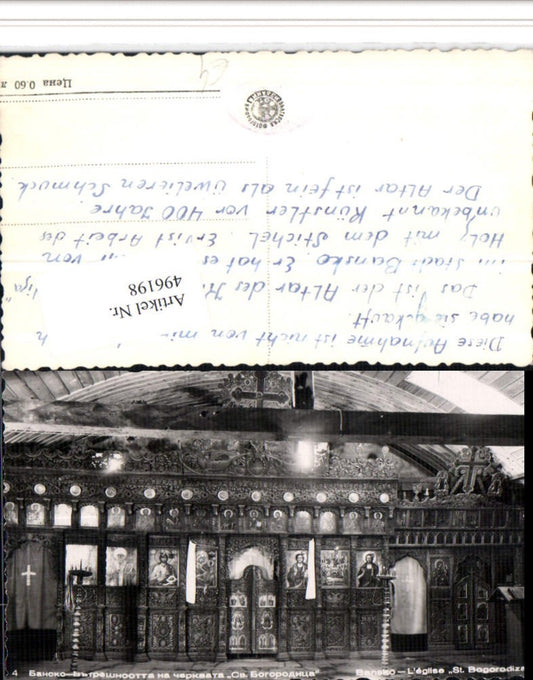 Diese Aufnahme ist nicht von mir
habe sie gekauft.
Das ist der Altar der Ki
im Stadt Bansko. Er hat es von
Holz mit dem Stichel. Er ist Arbeit des
unbekannt Künstler vor 400 Jahre.
Der Altar ist fein als Uwelieren Schmuck
Artikel Nr.
496198
Цена 0.60 л
4 Банско—вътрешността на черквата „Св. Богородица"
Bansko — L'église „St. Bogorodiza